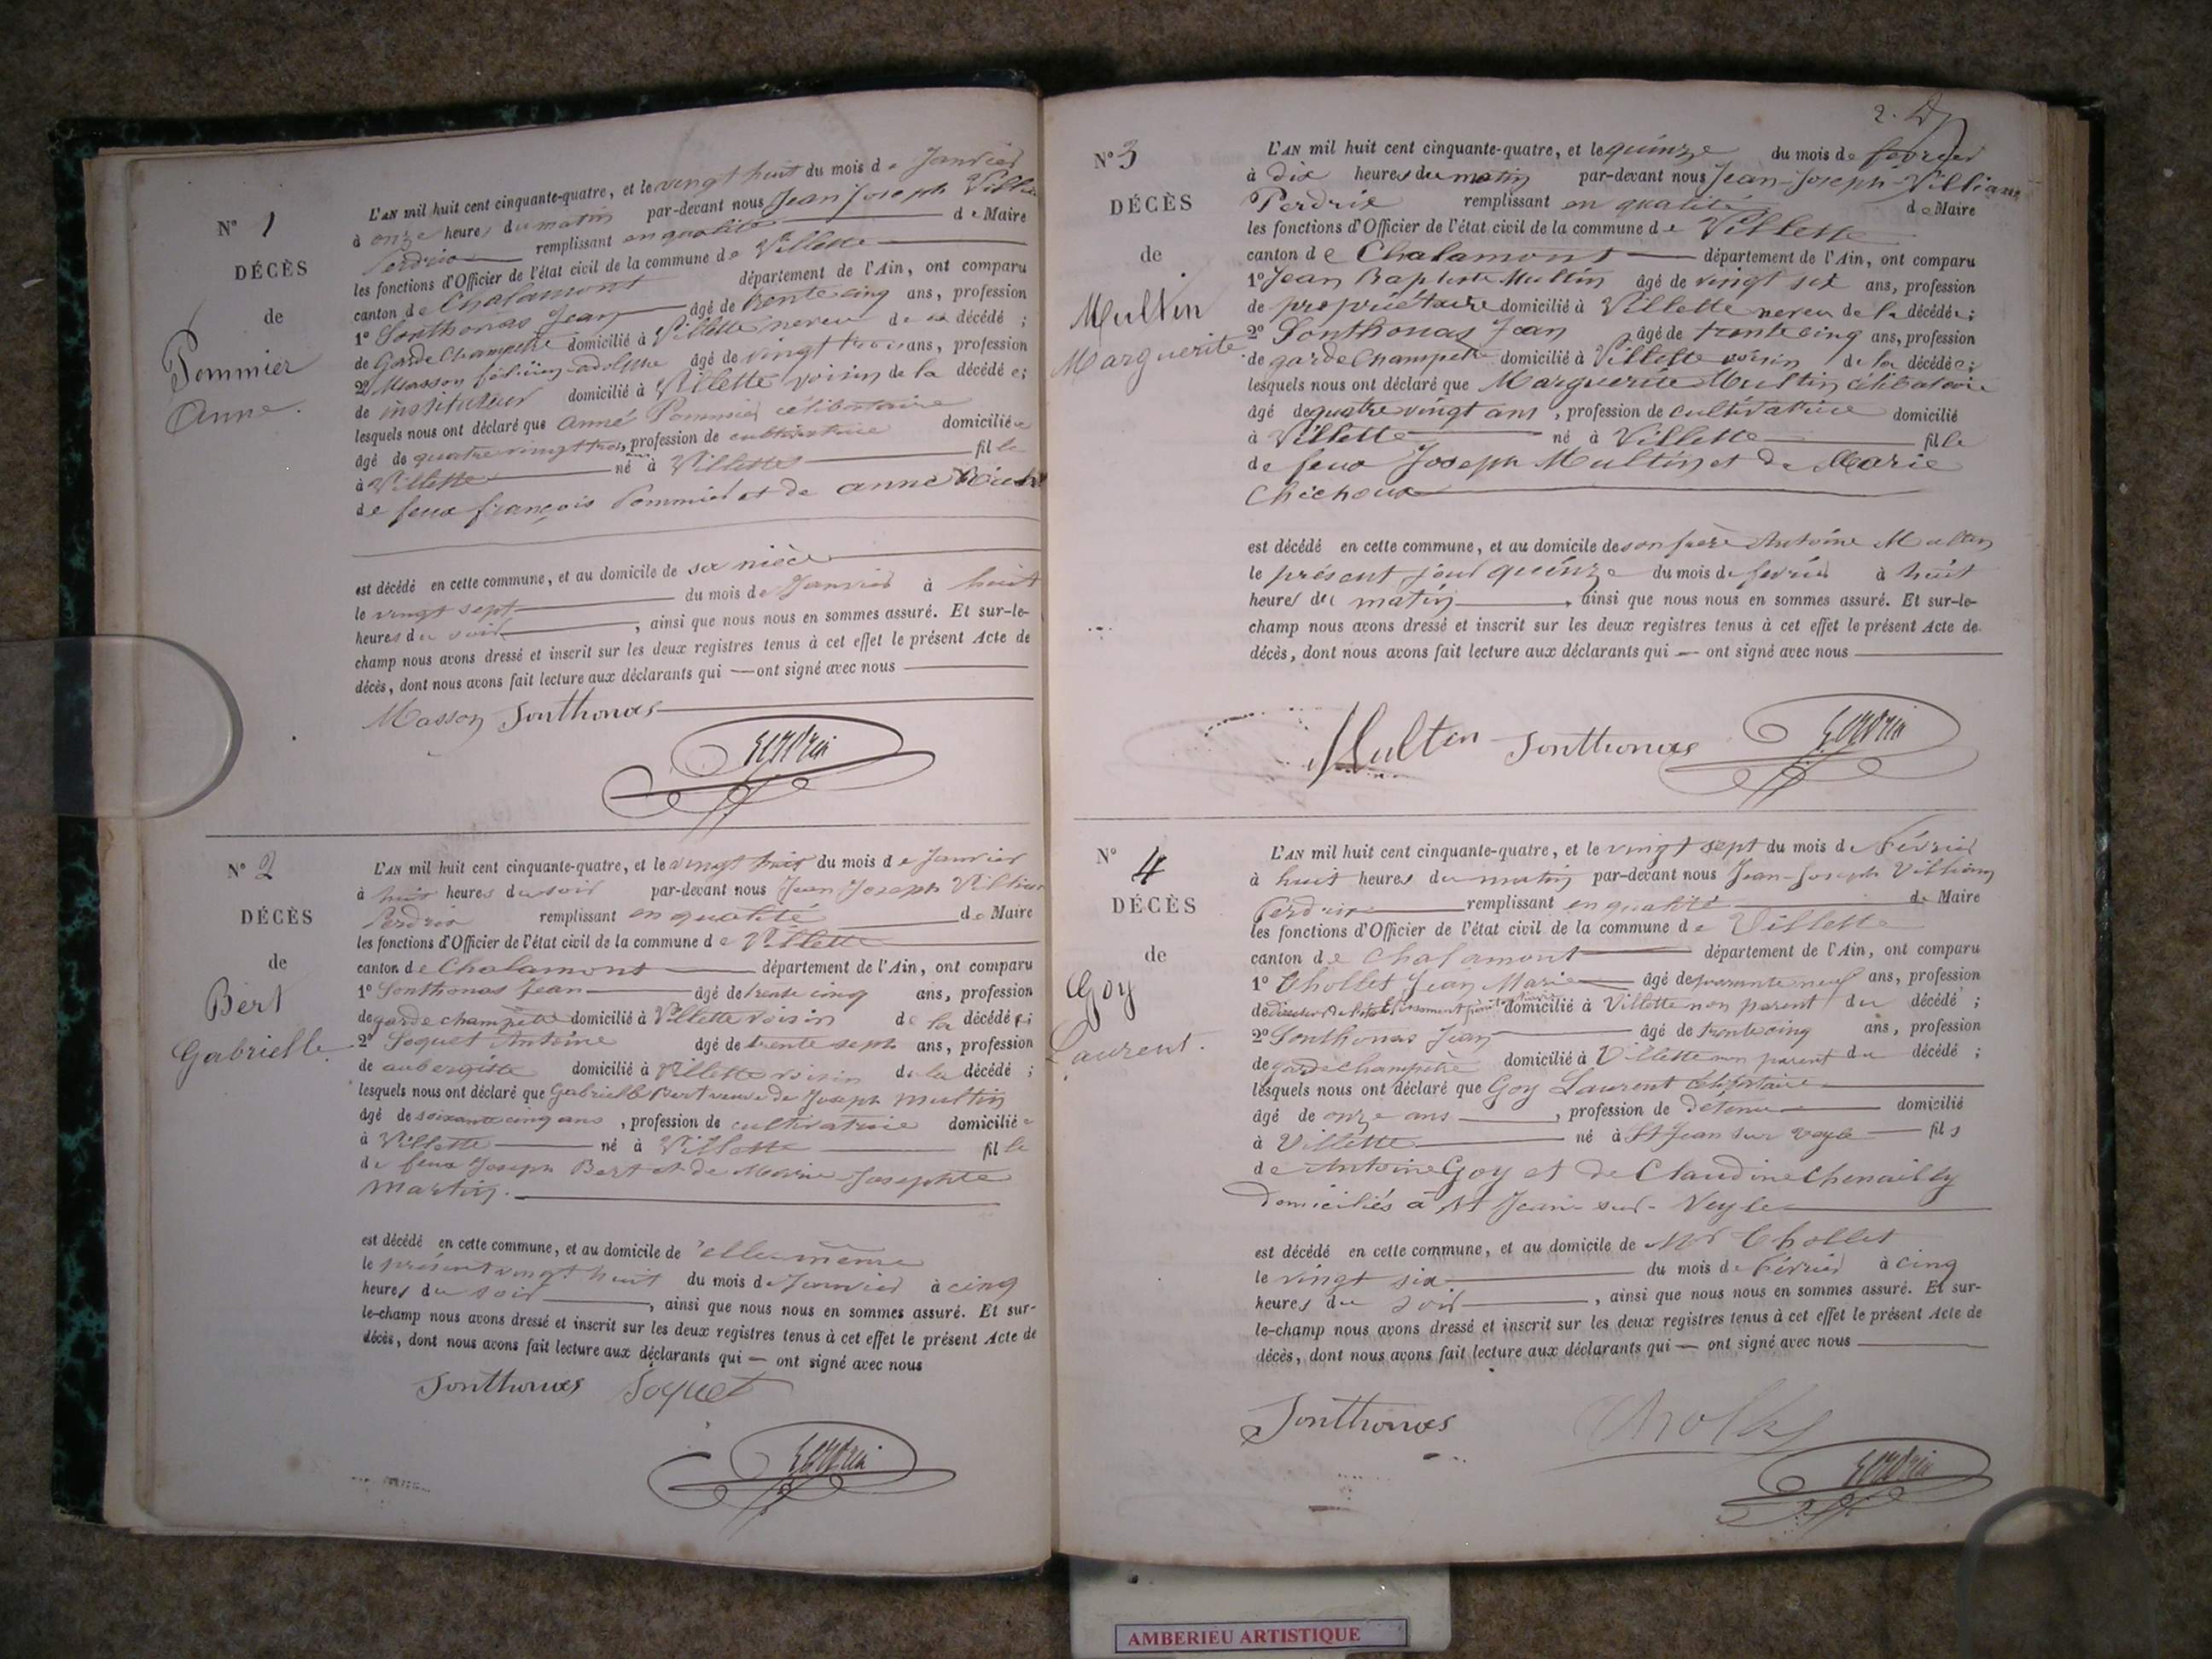 N° 1
DÉCÈS
de
Pommier
Anne.
L'AN mil huit cent cinquante-quatre, et le vingt huit du mois de Janvier
à onze heures du matin par-devant nous Jean Joseph
Perdrix remplissant en qualité de Maire
les fonctions d'Officier de l'état civil de la commune de Villette
canton de Chalamont département de l'Ain, ont comparu
1° Sonthonas Jean âgé de trente cinq ans, profession
de Garde Champetre domicilié à Villette neveu de la décédé ;
2° Masson adolphe âgé de vingt trois ans, profession
de instituteur domicilié à Villette voisin de la décédée;
lesquels nous ont déclaré que Anne Pommier célibataire
âgé de quatre vingt trois, profession de cultivatrice domiciliée
à Villette né à Villette fille
de feux françois Pommier et de anne
est décédé en cette commune, et au domicile de sa nièce
le vingt sept du mois de Janvier à huit
heures du soir, ainsi que nous nous en sommes assuré. Et sur-le-
champ nous avons dressé et inscrit sur les deux registres tenus à cet effet le présent Acte de
décès, dont nous avons fait lecture aux déclarants qui — ont signé avec nous
Masson Sonthonas
Perdrix
N° 2
DÉCÈS
de
Bert
Gabrielle.
L'AN mil huit cent cinquante-quatre, et le vingt huit du mois de Janvier
à huit heures du soir par-devant nous Jean Joseph
Perdrix remplissant en qualité de Maire
les fonctions d'Officier de l'état civil de la commune de Villette
canton de Chalamont département de l'Ain, ont comparu
1° Sonthonas Jean âgé de trente cinq ans, profession
de garde champêtre domicilié à Villette voisin de la décédée;
2° Soquet Antoine âgé de trente sept ans, profession
de aubergiste domicilié à Villette voisin de la décédé ;
lesquels nous ont déclaré que Gabrielle Bert veuve de Joseph Multin
âgé de soixante cinq ans, profession de cultivatrice domiciliée
à Villette né à Villette fille
de feux Joseph Bert et de Marie Josephte
Martin.
est décédé en cette commune, et au domicile de elle-même
le présent vingt huit du mois de Janvier à cinq
heures du soir, ainsi que nous nous en sommes assuré. Et sur-
le-champ nous avons dressé et inscrit sur les deux registres tenus à cet effet le présent Acte de
décès, dont nous avons fait lecture aux déclarants qui — ont signé avec nous
Sonthonas Soquet
Perdrix
2.
N° 3
DÉCÈS
de
Multin
Marguerite.
L'AN mil huit cent cinquante-quatre, et le quinze du mois de fevrier
à dix heures du matin par-devant nous Jean-Joseph-Villiam
Perdrix remplissant en qualité de Maire
les fonctions d'Officier de l'état civil de la commune de Villette
canton de Chalamont département de l'Ain, ont comparu
1° Jean Baptiste Multin âgé de vingt six ans, profession
de propriétaire domicilié à Villette neveu de la décédée;
2° Sonthonas Jean âgé de trente cinq ans, profession
de garde champetre domicilié à Villette voisin de la décédée;
lesquels nous ont déclaré que Marguerite Multin célibataire
âgé de quatre vingt ans, profession de cultivatrice domicilié
à Villette né à Villette fille
de feux Joseph Multin et de Marie
Chichoux
est décédé en cette commune, et au domicile de son frère Antoine Multin
le présent jour quinze du mois de fevrier à huit
heures du matin, ainsi que nous nous en sommes assuré. Et sur-le-
champ nous avons dressé et inscrit sur les deux registres tenus à cet effet le présent Acte de
décès, dont nous avons fait lecture aux déclarants qui — ont signé avec nous
Multin Sonthonas Perdrix
N° 4
DÉCÈS
de
Goy
Laurent.
L'AN mil huit cent cinquante-quatre, et le vingt sept du mois de Février
à huit heures du matin par-devant nous Jean-Joseph Villiam
Perdrix remplissant en qualité de Maire
les fonctions d'Officier de l'état civil de la commune de Villette
canton de Chalamont département de l'Ain, ont comparu
1° Chollet Jean Marie âgé de quarante neuf ans, profession
de directeur de domicilié à Villette non parent du décédé ;
2° Sonthonas Jean âgé de trente cinq ans, profession
de garde champêtre domicilié à Villette non parent du décédé ;
lesquels nous ont déclaré que Goy Laurent célibataire
âgé de onze ans, profession de détenu domicilié
à Villette né à St Jean sur Veyle fils
de Antoine Goy et de Claudine Chenailly
Domiciliés à St Jean-sur-Veyle
est décédé en cette commune, et au domicile de Mr Chollet
le vingt six du mois de Février à cinq
heures du soir, ainsi que nous nous en sommes assuré. Et sur-
le-champ nous avons dressé et inscrit sur les deux registres tenus à cet effet le présent Acte de
décès, dont nous avons fait lecture aux déclarants qui — ont signé avec nous
Sonthonas Chollet
Perdrix
AMBERIEU ARTISTIQUE